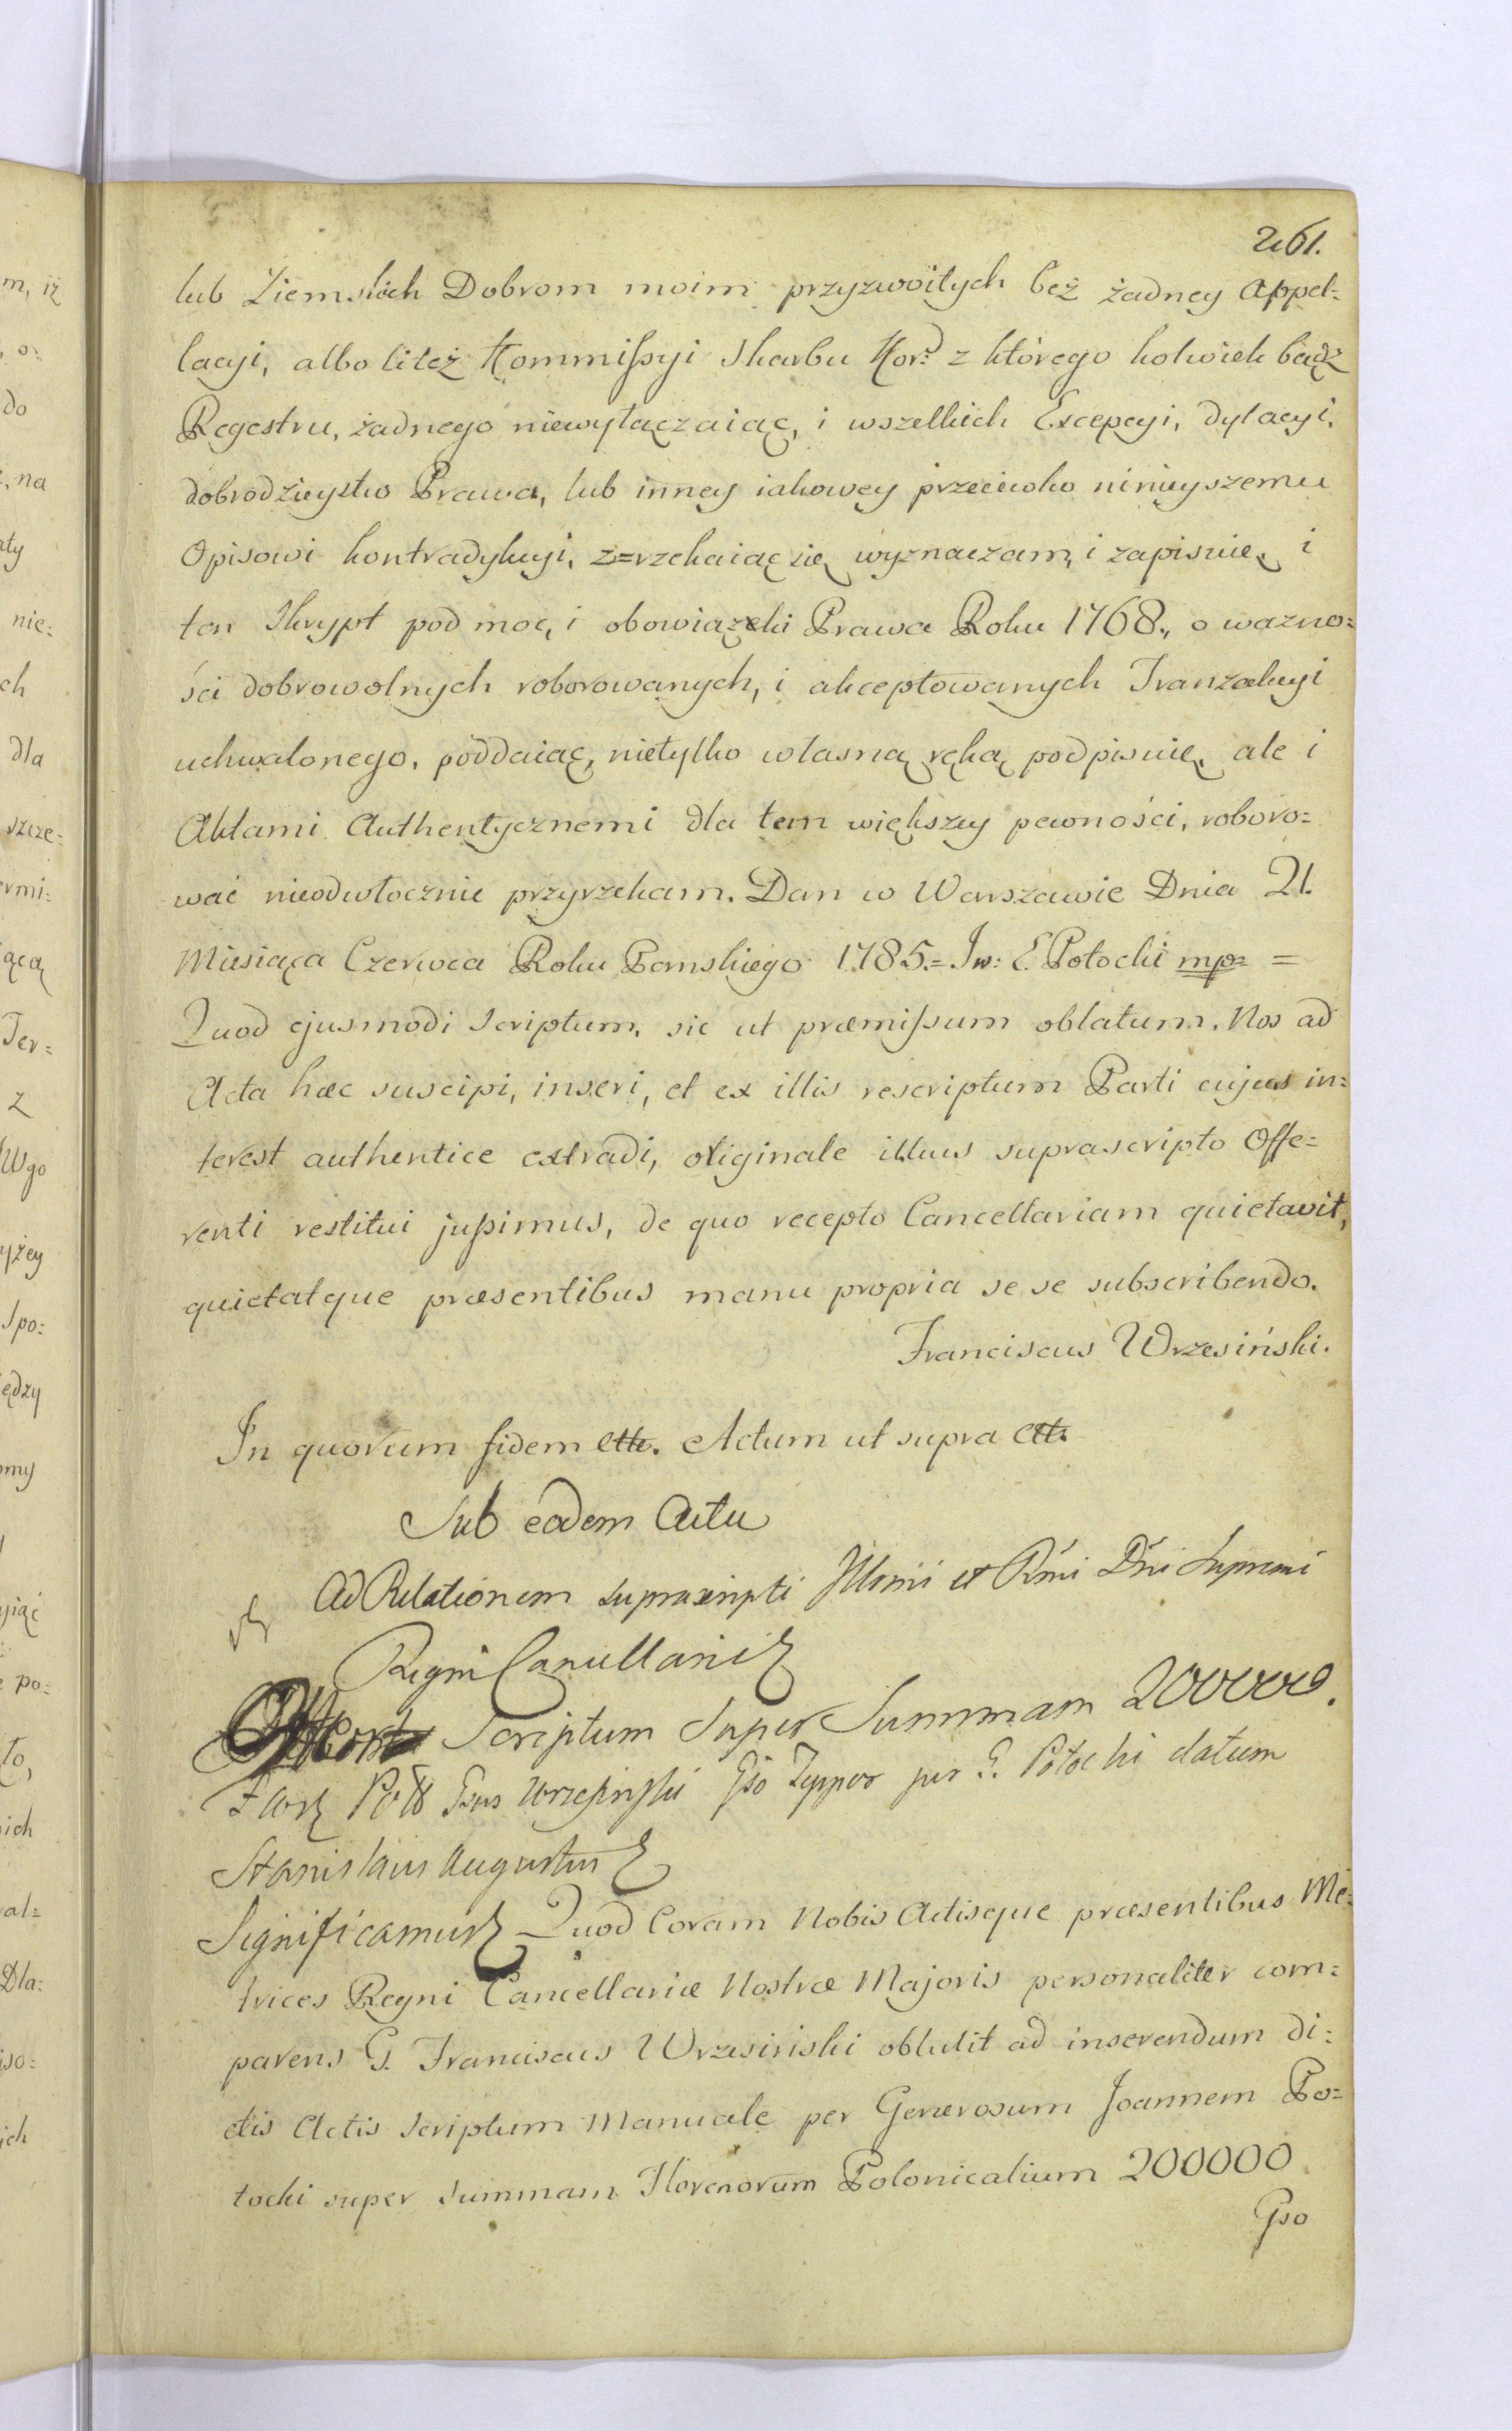 261.
lub Ziemskich Dobrom moim przyzwoitych beż żadney Appel=
lacyi, albo liteż Kommissyi Skarbu Kor: z którego kolwiek bądź
Regestru, żadnego niewyłączaiąc, i wszelkich Excepcyi, dylacyi,
dobrodzieystw Prawa, lub inney iakowey przeciwko ninieyszemu
Opisowi kontradykcyi, z=rzekaiąc się wyznaczam, i zapisuię, i
ten Skrypt pod moc, i obowiązki Prawa Roku 1768., o wazno=
ści dobrowolnych roborowanych, i akceptowanych Tranzakcyi
uchwalonego, poddaiąc, nietylko własną ręką podpisuię, ale i
Aktami Authentycznemi dla tem większey pewności, roboro=
wać nieodwłocznie przyrzekam. Dan w Warszawie Dnia 21.
Miesiąca Czerwca Roku Panskiego 1785.= Jw: E. Potocki mp =
Quod ejusmodi Scriptum, sic ut præmissum oblatum, Nos ad
Acta hæc suscipi, inseri, et ex illis rescriptum Parti cujus in=
terest authentice extradi, originale illius suprascripto Offe=
renti restitui jussimus, de quo recepto Cancellariam quietavit,
quietatque præsentibus manu propria se se subscribendo.
Franciscus Wrzesiński.
In quorum fidem ett. Actum ut supra ett.
Sub eodem Actu
Ad Relationem suprascripti Illmi et Rmi Dni Supremi
Regni Cancellarii
Scriptum Super Summam 200000.
Gsus Wrzesinski Gso per G. Potocki datum
Stanislaus Augustus
Significamus Quod Coram Nobis Actisque præsentibus Me=
trices Regni Cancellariæ Nostræ Majoris personaliter com=
parens G. Franciscus Wrzesiński obtulit ad inserendum di=
ctis Actis Scriptum Manuale per Generosum Joannem Po=
tocki super summam Florenorum Polonicalium 200000
Gso